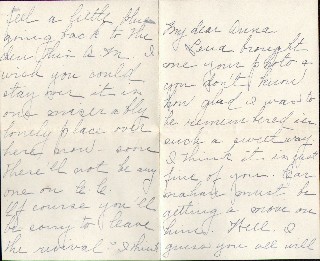 My dear Anna
Lena brought
me your photo &
you don't know
how glad I was to
be remembered in
such a sweet way.
I think it is just
fine of you.
must be
getting a move on
him. Well I
guess you all will
feel a little blue
going back to the
den this A.M. I
wish you could
stay over it in
one miserably
lonely place over
here now. soon
there'll not be any
one on
Of course you'll
be sorry to leave
the "I think